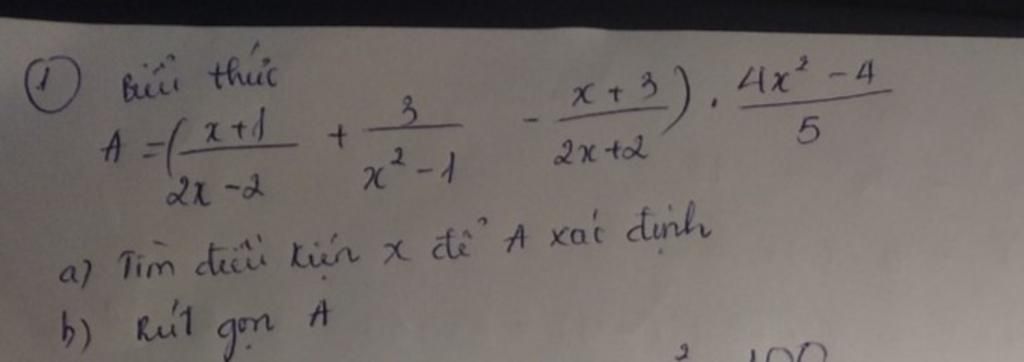 ① Biểu thức
A = ( \frac{x+1}{2x-2} + \frac{3}{x^2-1} - \frac{x+3}{2x+2} ) . \frac{4x^2-4}{5}
a) Tìm điều kiện x để A xác định
b) Rút gọn A
2 100